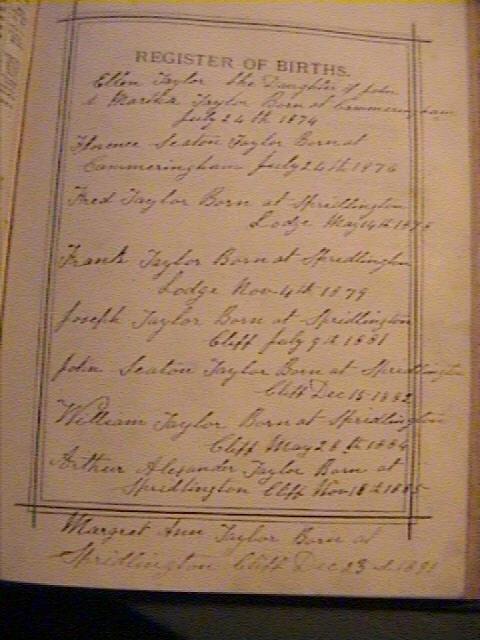 REGISTER OF BIRTHS.
Ellen Taylor the Daughter of John
& Martha Taylor Born at Cammeringham
July 24th 1874
Florence Seaton Taylor Born at
Cammeringham July 24th 1876
Fred Taylor Born at Spridlington
Lodge May 14th 1878
Frank Taylor Born at Spridlington
Lodge Nov 4th 1879
Joseph Taylor Born at Spridlington
Cliff July 9th 1881
John Seaton Taylor Born at Spridlington
Cliff Dec 15 1882
William Taylor Born at Spridlington
Cliff May 28th 1884
Arthur Alexander Taylor Born at
Spridlington Cliff Nov 18th 1885
Margret Ann Taylor Born at
Spridlington Cliff Dec 23rd 1891